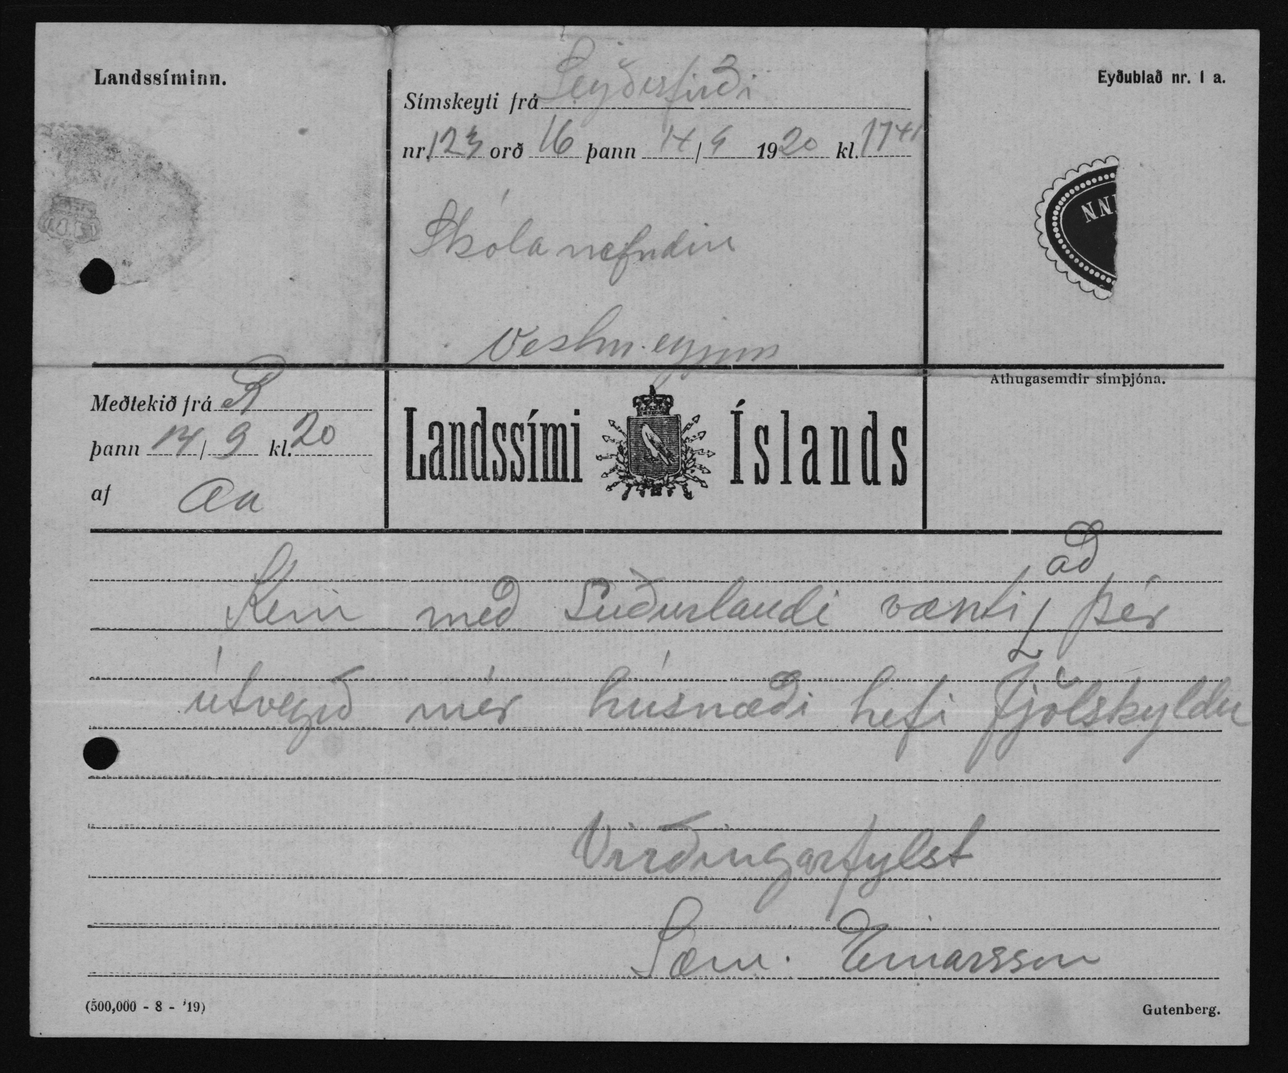 Landssíminn.
Eyðublað nr. 1 a.
Símskeyti frá Seyðisfirði
nr. 123 orð 16 þann 14/9 1920 kl. 1741
NN
Skólanefndin
Vestm.eyjum
Meðtekið frá R
þann 14/9 kl. 20
af
Landssími Íslands
Athugasemdir símþjóna.
að
Kem með Suðurlandi vænti þér
útvegið mér húsnæði hefi fjölskyldu
Virðingarfylst
Sæm. Einarsson
(500,000 - 8 - '19)
Gutenberg.